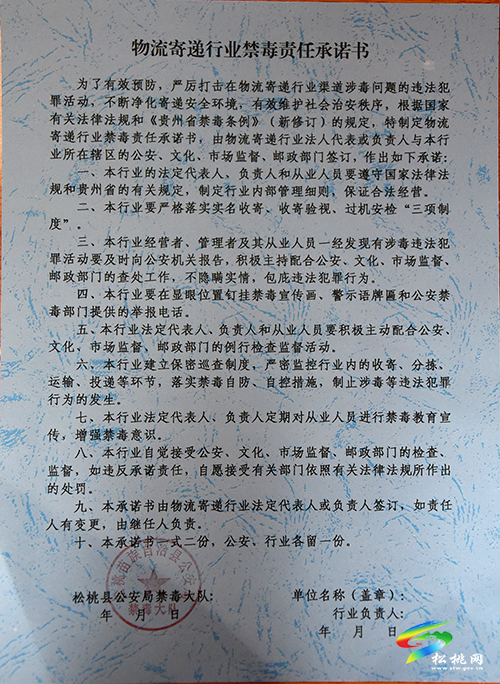 物流寄递行业禁毒责任承诺书
为了有效预防，严厉打击在物流寄递行业渠道涉毒问题的违法犯
罪活动，不断净化寄递安全环境，有效维护社会治安秩序，根据国家
有关法律法规和《贵州省禁毒条例》（新修订）的规定，特制定物流
寄递行业禁毒责任承诺书，由物流寄递行业法人代表或负责人与本行
业所在辖区的公安、文化、市场监督、邮政部门签订，作出如下承诺:
一、本行业的法定代表人、负责人和从业人员要遵守国家法律法
规和贵州省的有关规定，制定行业内部管理细则，保证合法经营。
二、本行业要严格落实实名收寄、收寄验视、过机安检“三项制
度”。
三、本行业经营者、管理者及其从业人员一经发现有涉毒违法犯
罪活动要及时向公安机关报告，积极主持配合公安、文化、市场监督、
邮政部门的查处工作，不隐瞒实情，包庇违法犯罪行为。
四、本行业要在显眼位置钉挂禁毒宣传画、警示语牌匾和公安禁
毒部门提供的举报电话。
五、本行业法定代表人、负责人和从业人员要积极主动配合公安、
文化，市场监督、邮政部门的例行检查监督活动。
六、本行业建立保密巡查制度，严密监控行业内的收寄、分拣、
运输、投递等环节，落实禁毒自防、自控措施，制止涉毒等违法犯罪
行为的发生。
七、本行业法定代表人、负责人定期对从业人员进行禁毒教育宣
传，增强禁毒意识。
八、本行业自觉接受公安、文化、市场监督、邮政部门的检查、
监督，如违反承诺责任，自愿接受有关部门依照有关法律法规所作出
的处罚。
九、本承诺书由物流寄递行业法定代表人或负责人签订，如责任
人有变更，由继任人负责。
十、本承诺书一式二份，公安、行业各留一份。
桃苗族自治县公安
禁毒大队
松桃县公安局禁毒大队: 单位名称（盖章）:
行业负责人:
年 月 日 年 月 日
松桃网
www.stw.gov.cn